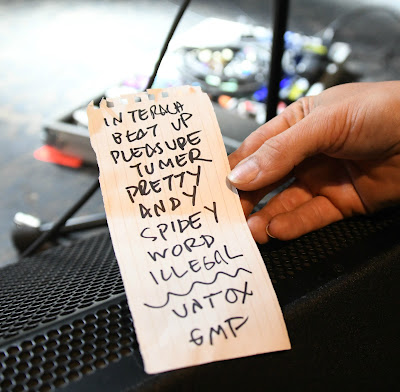 INTERALA
BEAT UP
PLEASURE
TUMER
PRETTY
ANDY
SPIDEY
WORD
ILLEGAL
VATOX
GMP